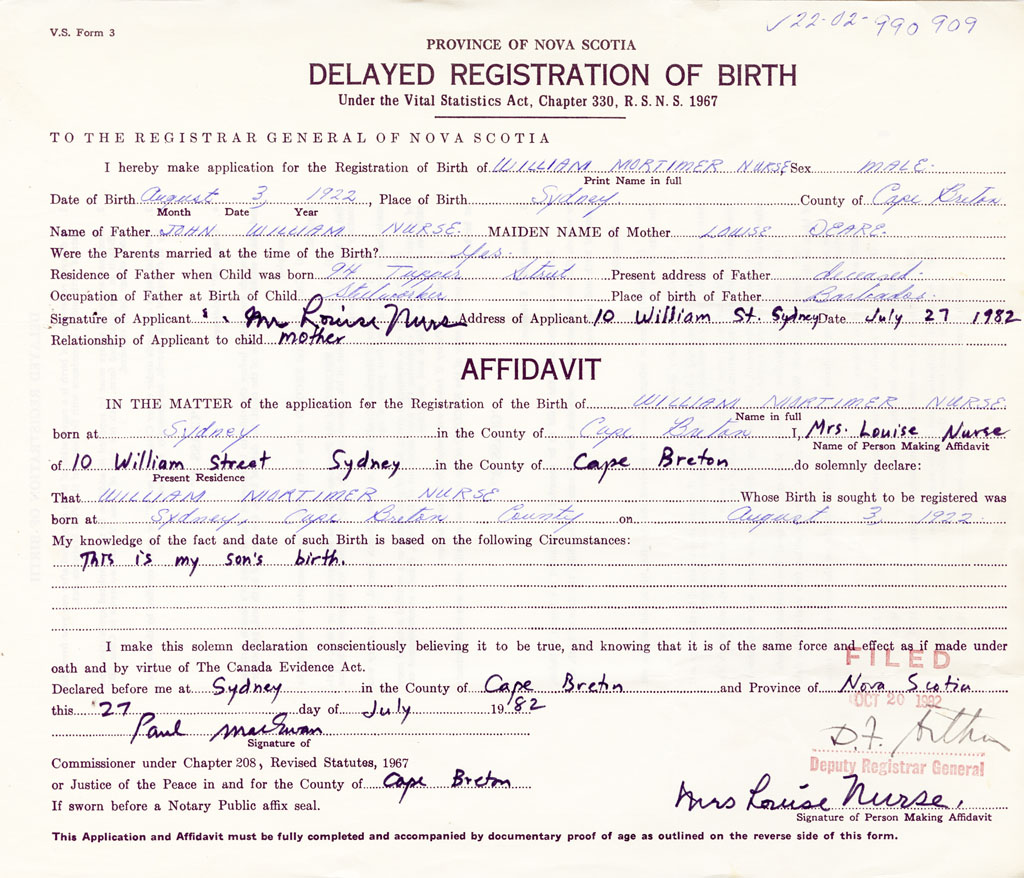 V.S. Form 3
22-02-990 909
PROVINCE OF NOVA SCOTIA
DELAYED REGISTRATION OF BIRTH
Under the Vital Statistics Act, Chapter 330, R. S. N. S. 1967
TO THE REGISTRAR GENERAL OF NOVA SCOTIA
I hereby make application for the Registration of Birth of WILLIAM MORTIMER NURSE Sex MALE.
Print Name in full
Date of Birth August 3, 1922, Place of Birth Sydney County of Cape Breton
Month Date Year
Name of Father JOHN WILLIAM NURSE. MAIDEN NAME of Mother LOUISE DEARE.
Were the Parents married at the time of the Birth? Yes.
Residence of Father when Child was born 94 Tupper Street Present address of Father deceased.
Occupation of Father at Birth of Child Steelworker Place of birth of Father Barbados.
Signature of Applicant Mrs Louise Nurse Address of Applicant 10 William St. Sydney Date July 27 1982
Relationship of Applicant to child mother
AFFIDAVIT
IN THE MATTER of the application for the Registration of the Birth of WILLIAM MORTIMER NURSE
Name in full
born at Sydney in the County of Cape Breton I, Mrs. Louise Nurse
Name of Person Making Affidavit
of 10 William Street Sydney in the County of Cape Breton do solemnly declare:
Present Residence
That WILLIAM MORTIMER NURSE Whose Birth is sought to be registered was
born at Sydney, Cape Breton County on August 3, 1922.
My knowledge of the fact and date of such Birth is based on the following Circumstances:
This is my son's birth.
I make this solemn declaration conscientiously believing it to be true, and knowing that it is of the same force and effect as if made under
oath and by virtue of The Canada Evidence Act.
FILED
Declared before me at Sydney in the County of Cape Breton and Province of Nova Scotia
OCT 20 1982
this 27 day of July 1982
Paul MacEwan
Signature of
D. F. Arthur
Deputy Registrar General
Commissioner under Chapter 208, Revised Statutes, 1967
or Justice of the Peace in and for the County of Cape Breton
Mrs Louise Nurse.
If sworn before a Notary Public affix seal.
Signature of Person Making Affidavit
This Application and Affidavit must be fully completed and accompanied by documentary proof of age as outlined on the reverse side of this form.